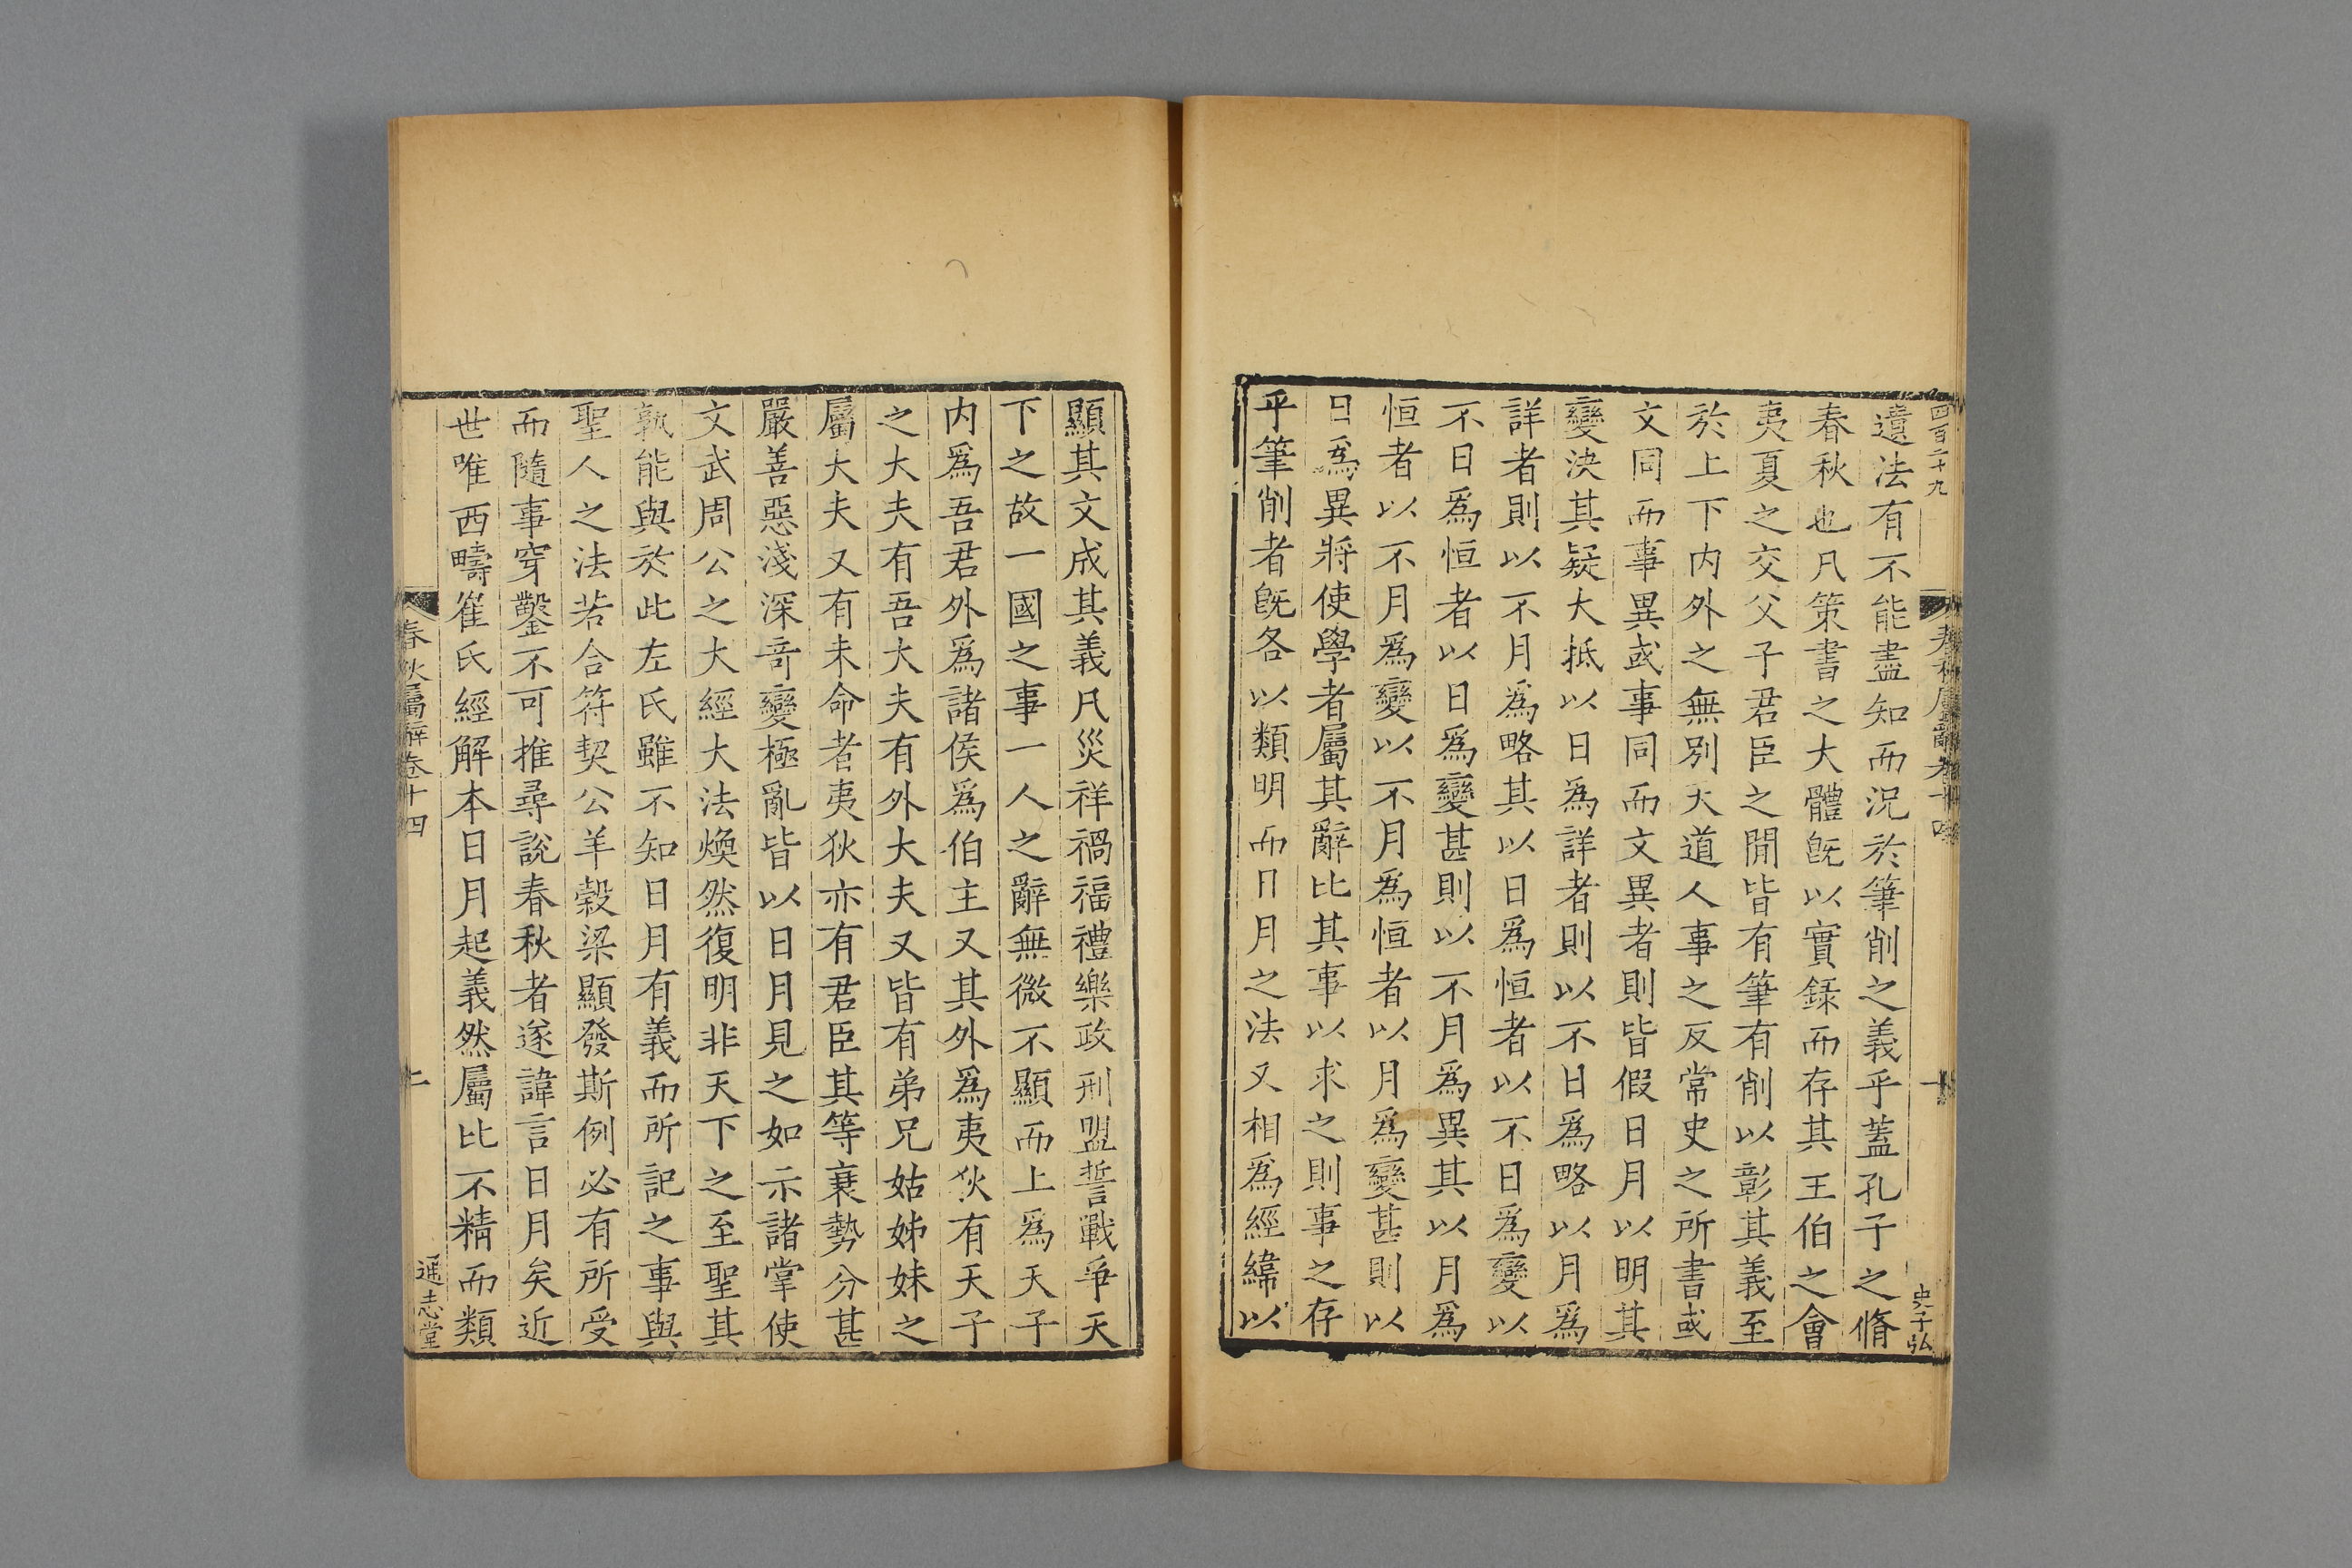 四百二十九
春秋屬辭卷十四
一
史子弘
遺法有不能盡知而況於筆削之義乎蓋孔子之脩
春秋也凡策書之大體旣以實錄而存其王伯之會
夷夏之交父子君臣之閒皆有筆有削以彰其義至
於上下内外之無别天道人事之反常史之所書或
文同而事異或事同而文異者則皆假日月以明其
變決其疑大抵以日爲詳者則以不日爲略以月爲
詳者則以不月爲略其以日爲恒者以不日爲變以
不日爲恒者以日爲變甚則以不月爲異其以月爲
恒者以不月爲變以不月爲恒者以月爲變甚則以
日爲異將使學者屬其辭比其事以求之則事之存
乎筆削者旣各以類明而日月之法又相爲經緯以
顯其文成其義凡災祥禍福禮樂政刑盟誓戰爭天
下之故一國之事一人之辭無微不顯而上爲天子
内爲吾君外爲諸侯爲伯主又其外爲夷狄有天子
之大夫有吾大夫有外大夫又皆有弟兄姑姊妹之
屬大夫又有未命者夷狄亦有君臣其等衰勢分甚
嚴善惡淺深奇變極亂皆以日月見之如示諸掌使
文武周公之大經大法煥然復明非天下之至聖其
孰能與於此左氏雖不知日月有義而所記之事與
聖人之法若合符契公羊穀梁顯發斯例必有所受
而隨事穿鑿不可推尋說春秋者遂諱言日月矣近
世唯西疇崔氏經解本日月起義然屬比不精而類
春秋屬辭卷十四
二
通志堂